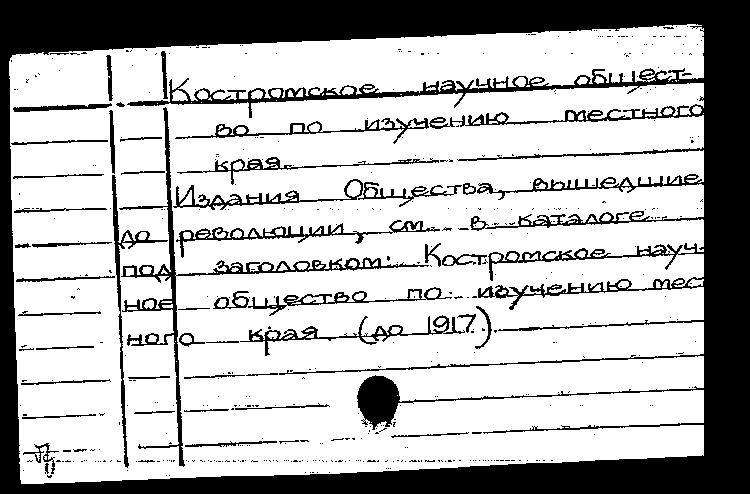 Костромское научное общест-
во по изучению местного
края.
Издания Общества, вышедшие
до революции, см. в каталоге
под заголовком: Костромское науч-
ное общество по изучению мест
ного края (до 1917)